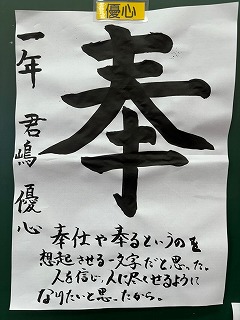 優心
奉
一年 君嶋 優心
奉仕や奉るというのを
想起させる一文字だと思った。
人を信じ、人に尽くせるように
なりたいと思ったから。